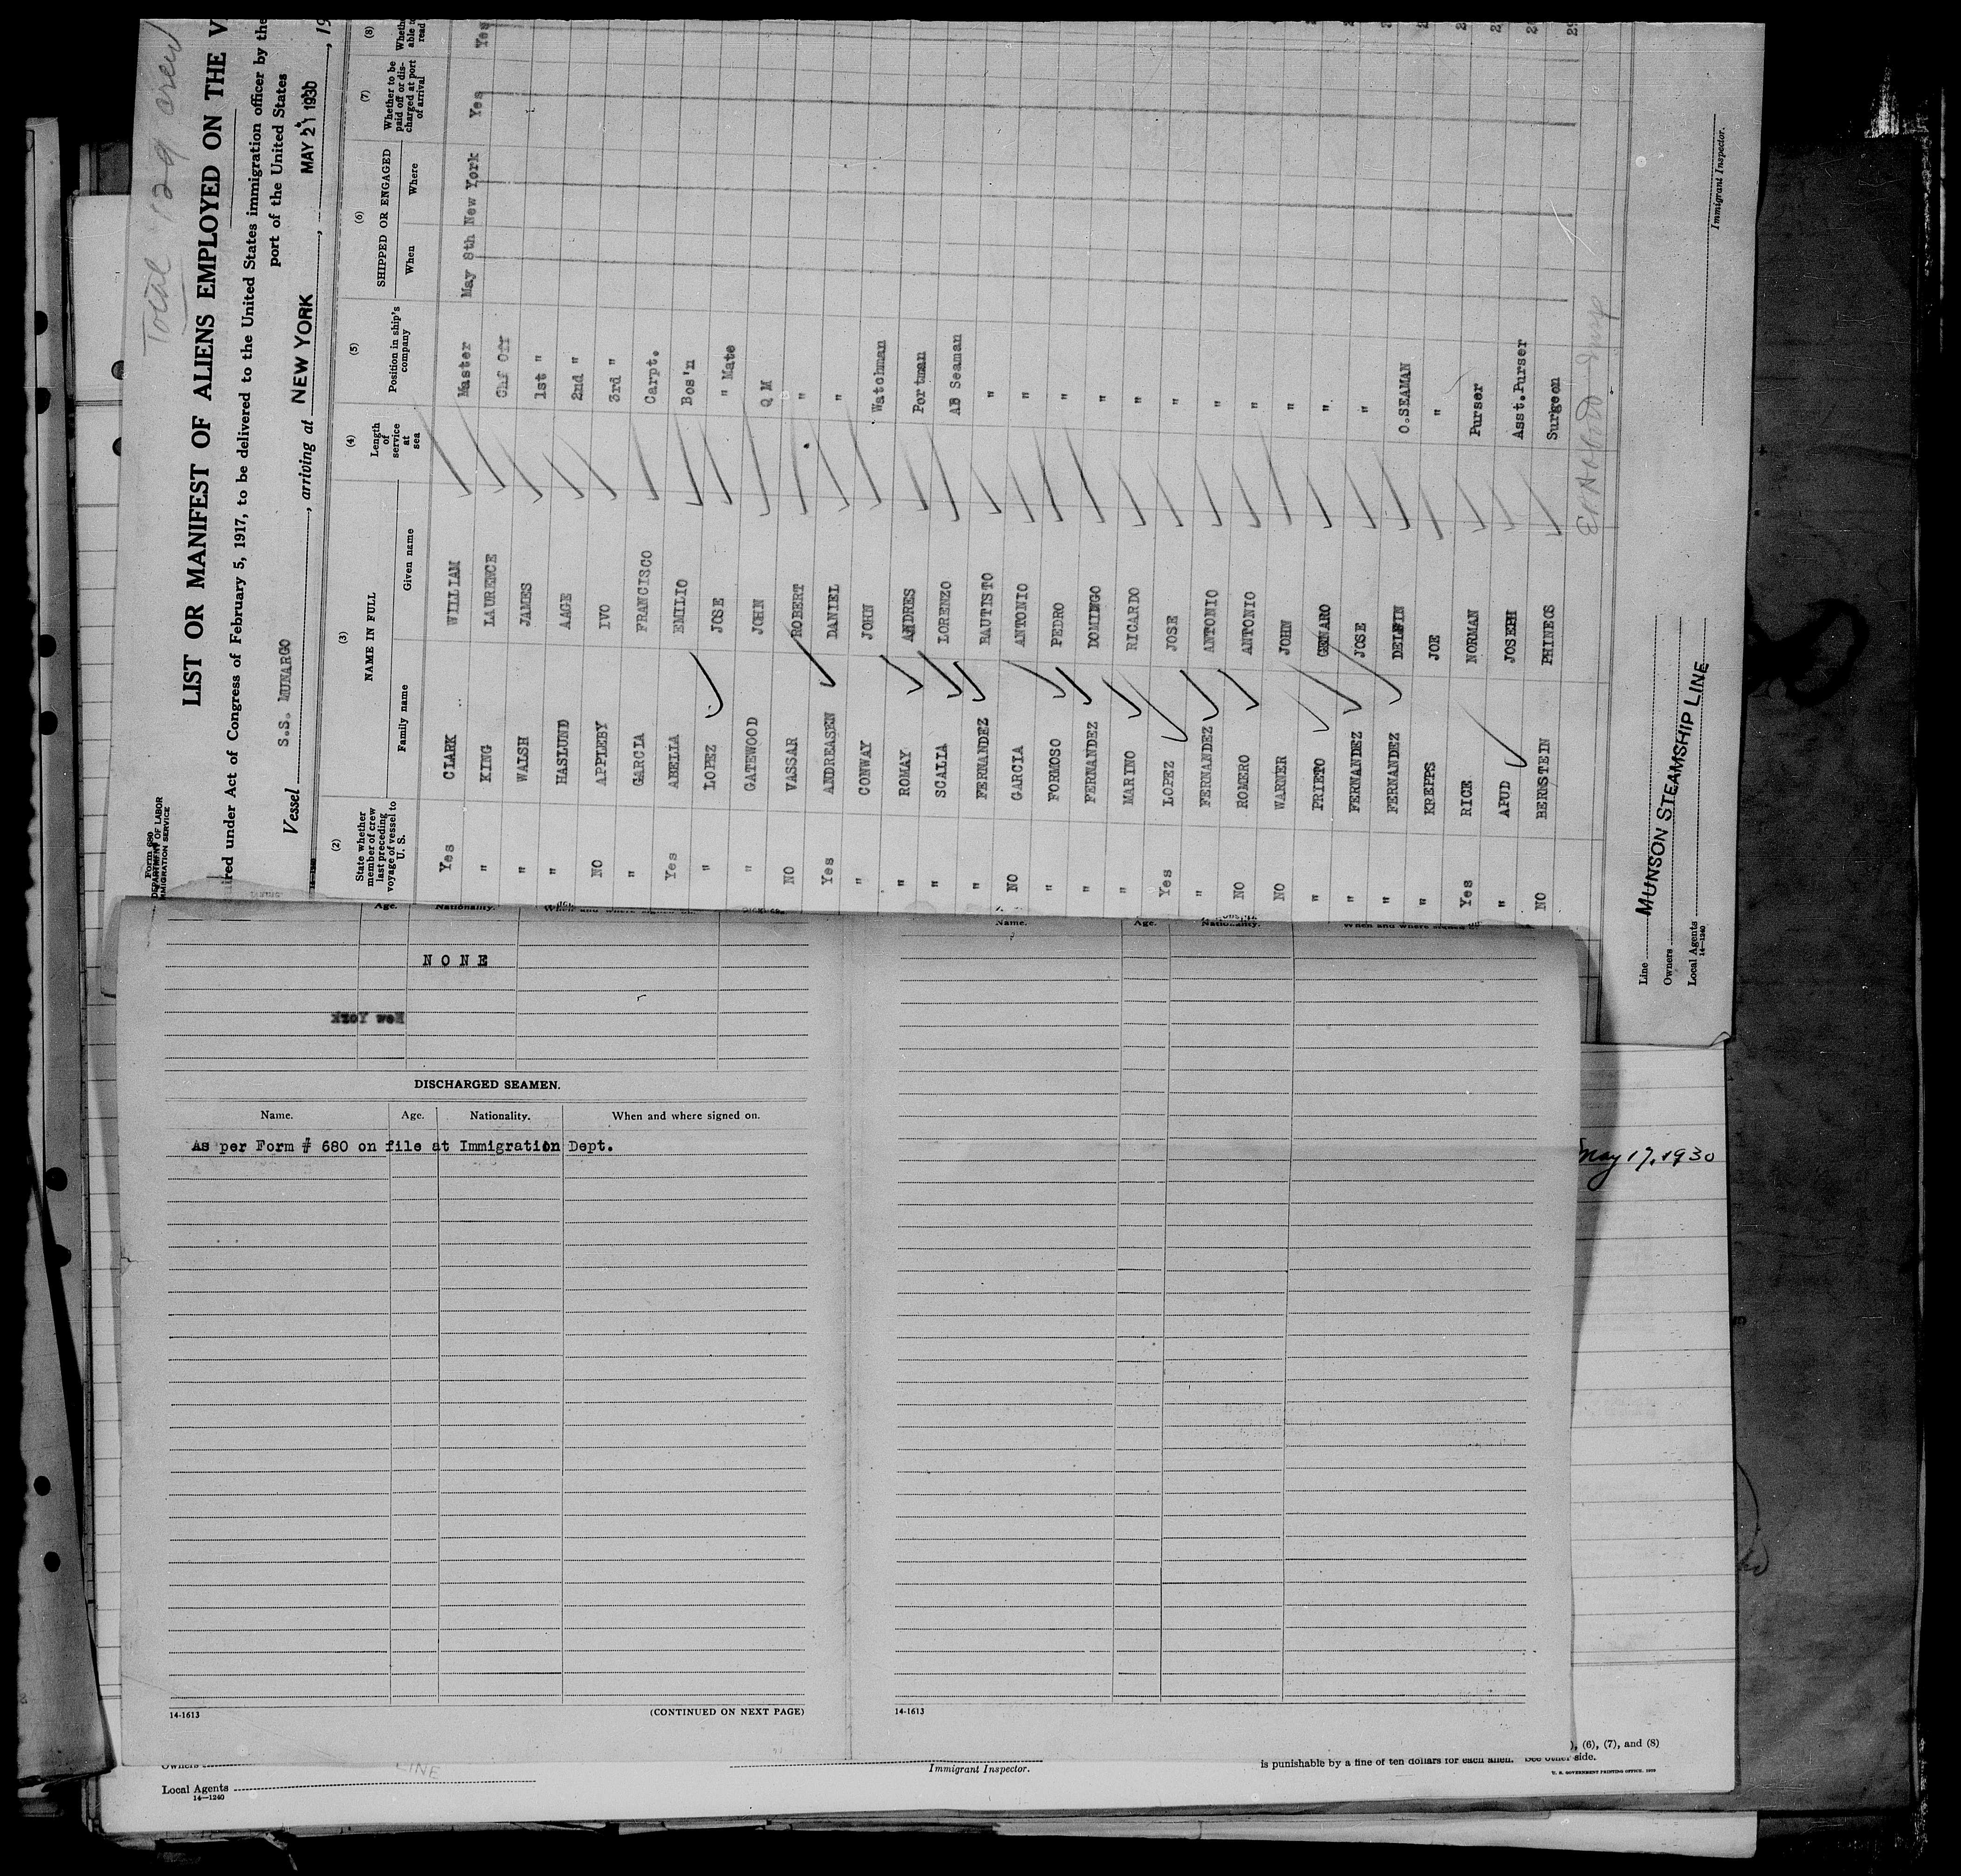 Total 129 crew
Form 680
DEPARTMENT OF LABOR
IMMIGRATION SERVICE
LIST OR MANIFEST OF ALIENS EMPLOYED ON THE V
ired under Act of Congress of February 5, 1917, to be delivered to the United States immigration officer by the
port of the United States
Vessel S.S. MUNARGO , arriving at NEW YORK , MAY 21 1930 , 19
(2) (3) (4) (5) (6) (7) (8)
State whether member of crew last preceding voyage of vessel to U. S.
NAME IN FULL
Family name
Given name
Length of service at sea
Position in ship's company
SHIPPED OR ENGAGED
When
Where
Whether to be paid off or discharged at port of arrival
Yes CLARK WILLIAM Master May 8th New York Yes Yes
" KING LAURENCE Chf Off
" WALSH JAMES 1st "
" HASLUND AAGE 2nd "
NO APPLEBY IVO 3rd "
" GARCIA FRANCISCO Carpt.
Yes ABELLA EMILIO Bos'n
" LOPEZ JOSE " Mate
" GATEWOOD JOHN Q M
NO VASSAR ROBERT "
Yes ANDREASEN DANIEL "
" CONWAY JOHN Watchman
" ROMAY ANDRES Portman
" SCALIA LORENZO AB Seaman
" FERNANDEZ BAUTISTO "
NO GARCIA ANTONIO "
" FORMOSO PEDRO "
" FERNANDEZ DOMINGO "
" MARINO RICARDO "
Yes LOPEZ JOSE "
" FERNANDEZ ANTONIO "
NO ROMERO ANTONIO "
NO WARNER JOHN "
" PRIETO GENARO "
" FERNANDEZ JOSE "
" FERNANDEZ DELFIN O.SEAMAN
" KREPPS JOE "
Yes RICE NORMAN Purser
" APUD JOSEPH Asst.Purser
NO BERNSTEIN PHINEOS Surgeon
Line MUNSON STEAMSHIP LINE
Owners
Local Agents
14—1240
Immigrant Inspector.
Age. Nationality.
NONE
New York
DISCHARGED SEAMEN.
Name. Age. Nationality. When and where signed on.
As per Form # 680 on file at Immigration Dept.
14-1613
(CONTINUED ON NEXT PAGE)
Name. Age. Nationality. When and where signed on.
14-1613
May 17, 1930
), (6), (7), and (8)
is punishable by a fine of ten dollars for each alien. See other side.
U. S. GOVERNMENT PRINTING OFFICE. 1929
Owners
LINE
Immigrant Inspector.
Local Agents
14—1240